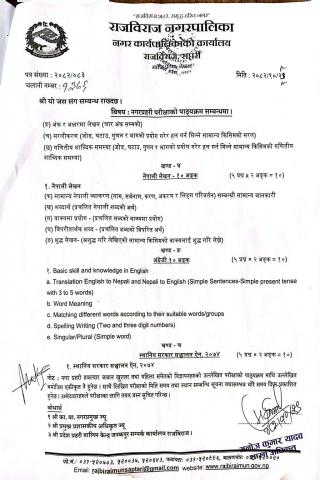 "राजविराज शहर, समृद्ध हरित नगर"
राजविराज नगरपालिका
नगर कार्यपालिकाको कार्यालय
राजविराज, सप्तरी
पत्र संख्या : २०८२/०८३
चलानी नम्बर :
मिति : २०८२/१०/२१
श्री यो जस संग सम्बन्ध राख्दछ।
विषय : नगरप्रहरी परीक्षाको पाठ्यक्रम सम्बन्धमा।
(ङ) अंक र अक्षरमा लेखन (चार अंक सम्मको)
(च) सरलीकरण (जोड, घटाउ, गुणन र भागको प्रयोग गरेर हल गर्न मिल्ने सामान्य किसिमको सरल)
(छ) गणितीय शाब्दिक समस्या (जोड, घटाउ, गुणन र भागको प्रयोग गरेर हल गर्न मिल्ने सामान्य किसिमको गणितीय
शाब्दिक समस्या)
खण्ड - घ
नेपाली लेखन - १० अङ्क (५ प्रश्न x २ अङ्क = १०)
१. नेपाली लेखन
(क) सामान्य नेपाली व्याकरण (नाम, सर्वनाम, करण, अकरण र लिङ्ग परिवर्तन) सम्बन्धी सामान्य जानकारी
(ख) शब्दार्थ (प्रचलित नेपाली शब्दको अर्थ)
(ग) वाक्यमा प्रयोग - (प्रचलित शब्दको वाक्यमा प्रयोग)
(घ) विपरीतार्थक शब्द - (प्रचलित शब्दको विपरित अर्थ)
(ङ) शुद्ध लेखन- (अशुद्ध गरि लेखिएको सामान्य किसिमको वाक्यलाई शुद्ध गरि लेख्ने)
खण्ड - ङ
अंग्रेजी १० अङ्क (५ प्रश्न x २ अङ्क = १०)
1. Basic skill and knowledge in English
a. Translation English to Nepali and Nepali to English (Simple Sentences-Simple present tense
with 3 to 5 words)
b. Word Meaning
c. Matching different words according to their suitable words/groups
d. Spelling Writing (Two and three digit numbers)
e. Singular/Plural (Simple word)
खण्ड - च
स्थानिय सरकार सञ्चालन ऐन, २०७४ (५ प्रश्न x २ अङ्क = १०)
१. स्थानिय सरकार सञ्चालन ऐन, २०७४
बोधार्थ
१ श्री का. वा. नगरप्रमुख ज्यू
२ श्री प्रमुख प्रशासकीय अधिकृत ज्यू
३ श्री प्रदेश प्रहरी तालिम केन्द्र जनकपुर सम्पर्क कार्यालय राजविराज।
मनोज कुमार यादव
Email: rajbirajmunsaptari@gmail.com, Website: www.rajbirajmun.gov.np